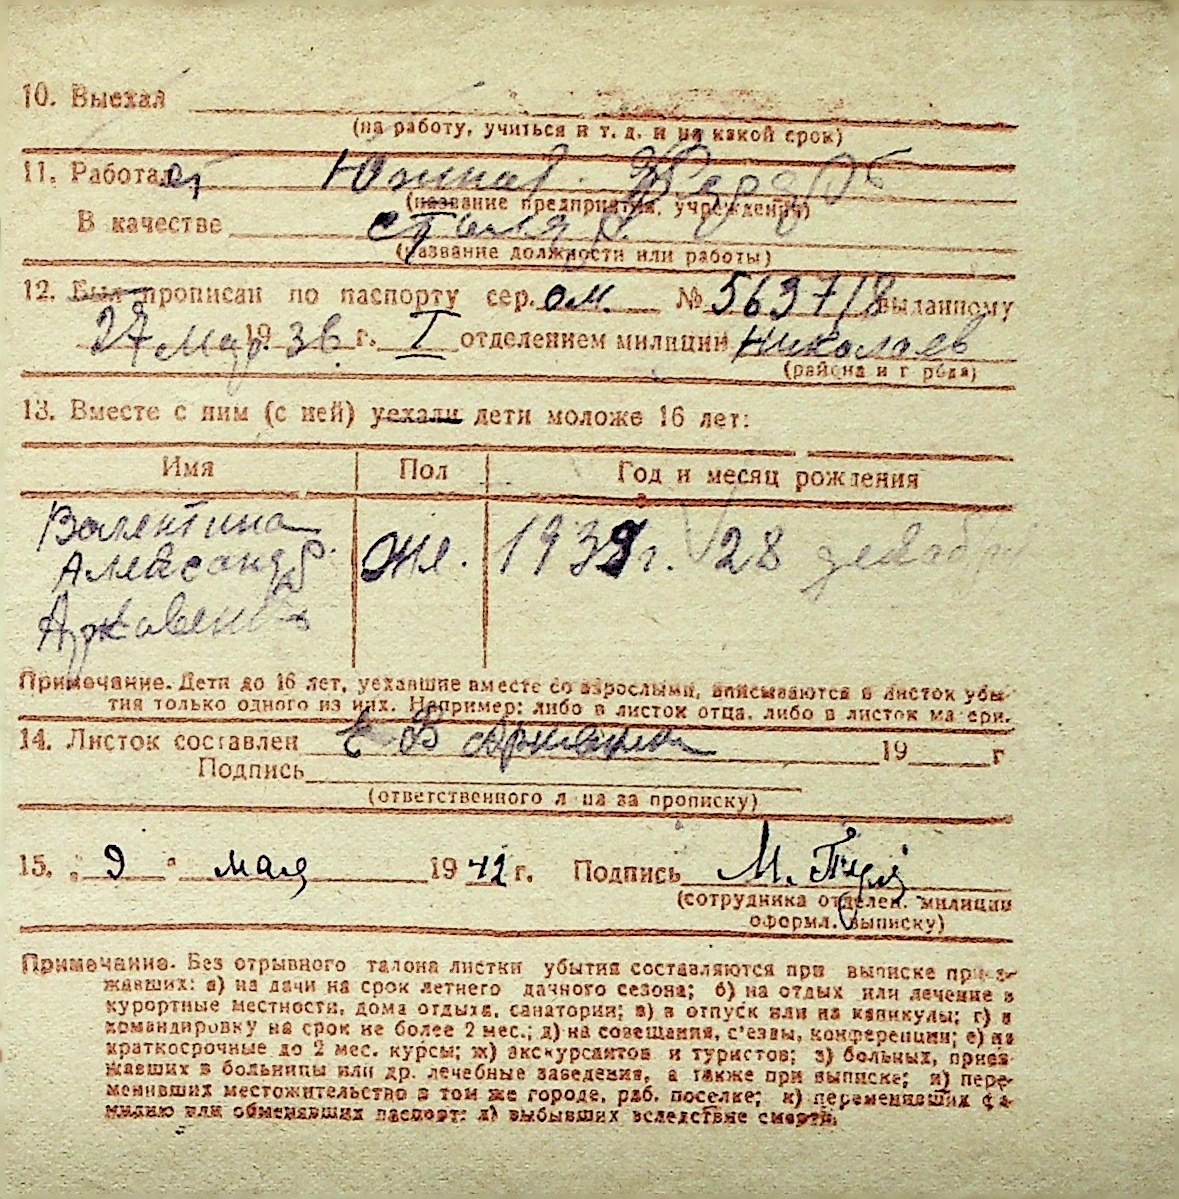 10. Выехал
(на работу, учиться и т. д. и на какой срок)
11. Работает Южная Верфь
(название предприятия, учреждения)
В качестве столяр.
(название должности или работы)
12. Был прописан по паспорту сер. ом. № 563718 выданному
27 мар. 1936 г. I отделением милиции Николаев
(района и города)
13. Вместе с ним (с ней) уехали дети моложе 16 лет:
Имя Пол Год и месяц рождения
Валентина
Александр. Же. 1939 г. 28 декабр
Примечание. Дети до 16 лет, уехавшие вместе со взрослыми, вписываются в листок убы-
тия только одного из них. Например: либо в листок отца, либо в листок матери.
14. Листок составлен Е В 19 г
Подпись
(ответственного лица за прописку)
15. „ 9 " мая 1942 г. Подпись М.
(сотрудника отделен. милиции
оформл. выписку)
Примечание. Без отрывного талона листки убытия составляются при выписке приез-
жавших: а) на дачи на срок летнего дачного сезона; б) на отдых или лечение в
курортные местности, дома отдыха, санатории; в) в отпуск или на каникулы; г) в
командировку на срок не более 2 мес.; д) на совещания, с'езды, конференции; е) на
краткосрочные до 2 мес. курсы; ж) экскурсантов и туристов; з) больных, приез-
жавших в больницы или др. лечебные заведения, а также при выписке; и) пере-
менивших местожительство в том же городе, раб. поселке; к) переменивших фа-
милию или обменявших паспорт; л) выбывших вследствие смерти.